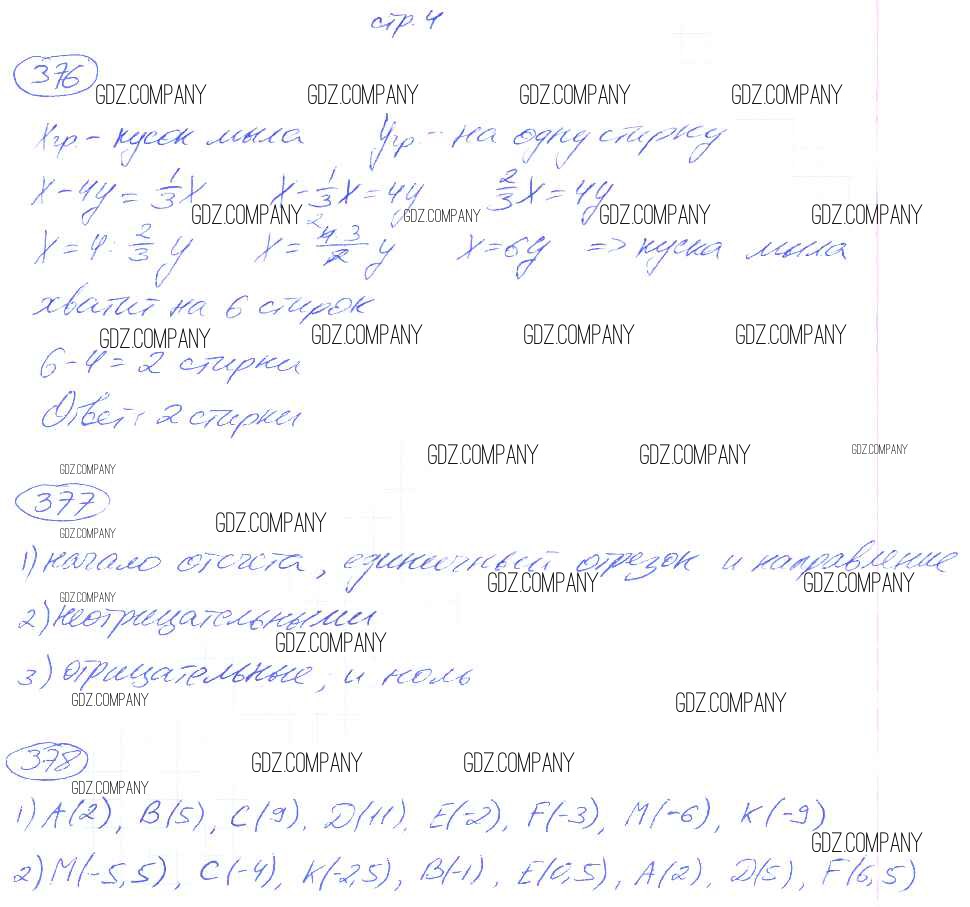 стр. 4
376
GDZ.COMPANY GDZ.COMPANY GDZ.COMPANY GDZ.COMPANY
Xгр. – кусок мыла Yгр. – на одну стирку
X – 4y = 1/3 X X – 1/3 X = 4y 2/3 X = 4y
GDZ.COMPANY GDZ.COMPANY GDZ.COMPANY GDZ.COMPANY
X = 4 : 2/3 y X = 2 4 3/2 y X = 6y => куска мыла
хватит на 6 стирок
GDZ.COMPANY GDZ.COMPANY GDZ.COMPANY GDZ.COMPANY
6 – 4 = 2 стирки
Ответ: 2 стирки
GDZ.COMPANY GDZ.COMPANY GDZ.COMPANY
GDZ.COMPANY
377
GDZ.COMPANY GDZ.COMPANY
1) начало отсчета, единичный отрезок и направление
GDZ.COMPANY GDZ.COMPANY
GDZ.COMPANY
2) неотрицательными
GDZ.COMPANY
3) отрицательные, и ноль
GDZ.COMPANY GDZ.COMPANY
378
GDZ.COMPANY GDZ.COMPANY
GDZ.COMPANY
1) A(2), B(5), C(9), D(11), E(-2), F(-3), M(-6), K(-9)
GDZ.COMPANY
2) M(-5,5), C(-4), K(-2,5), B(-1), E(0,5), A(2), D(5), F(6,5)